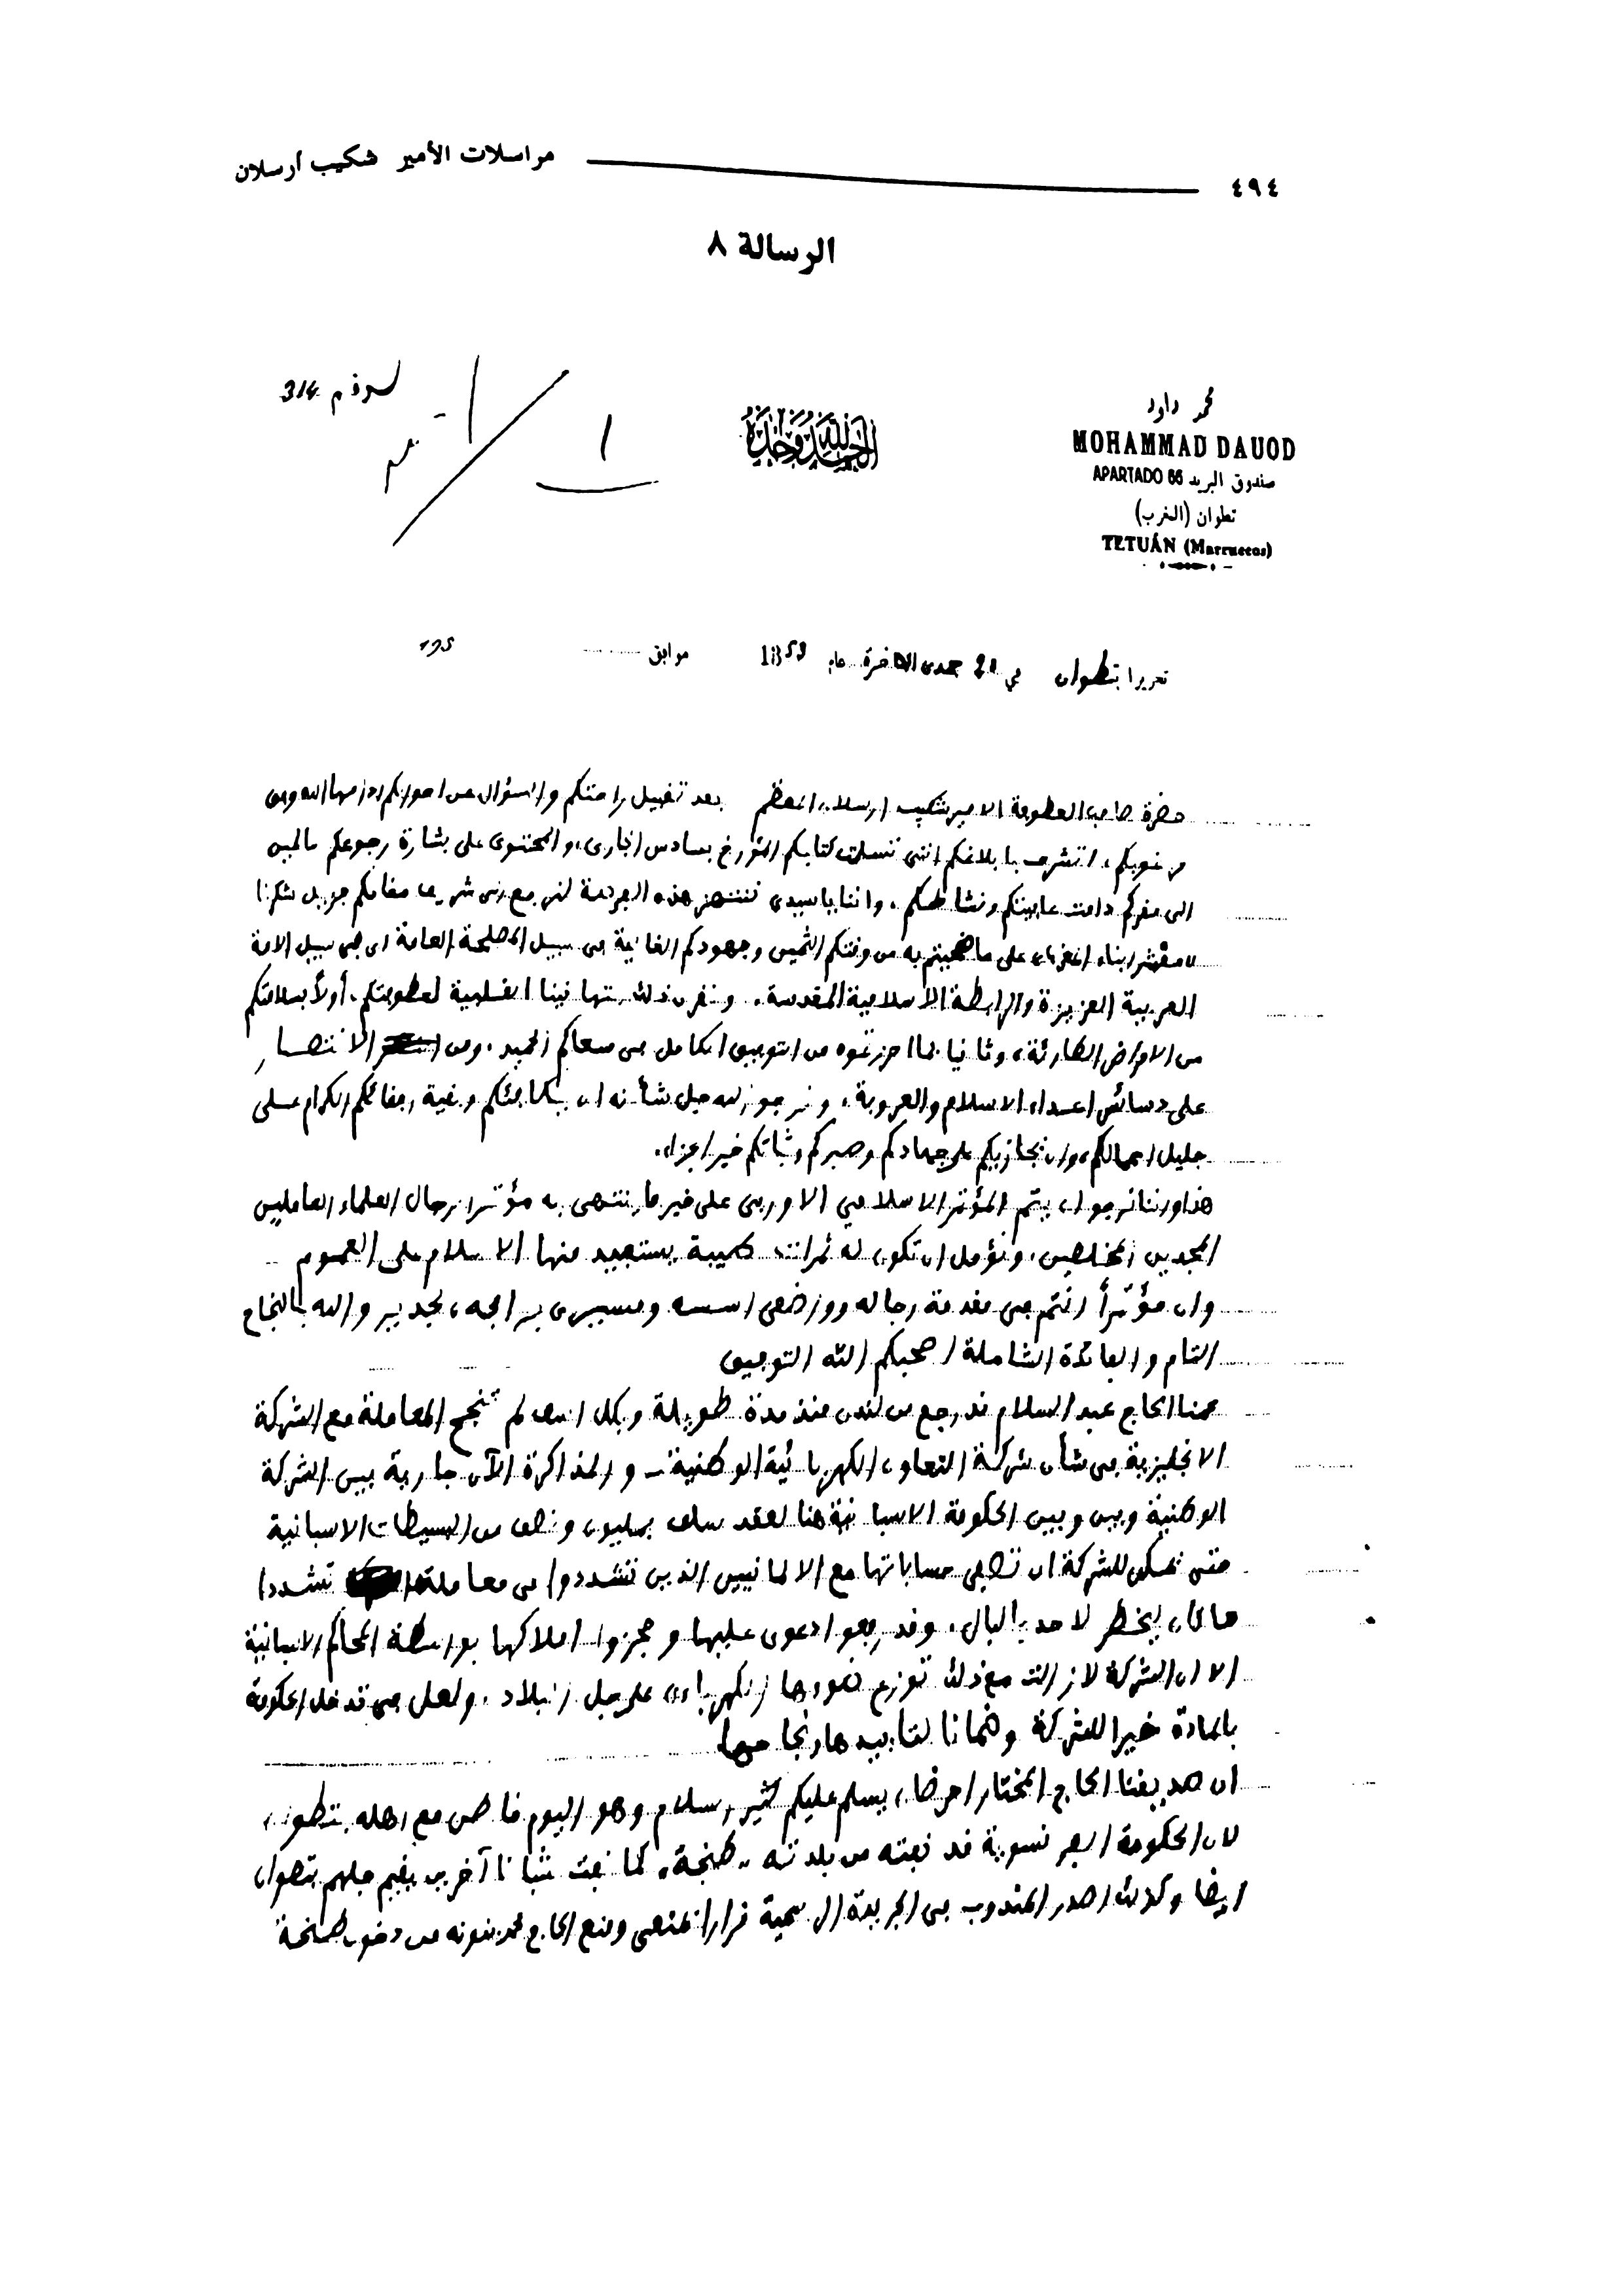 ٤٩٤ مراسلات الأمير شكيب أرسلان
الرسالة ٨
محمد داود
MOHAMMAD DAUOD
APARTADO 66 صندوق البريد
تطوان (المغرب)
TETUÁN (Marruecos)
الحمد لله وحده
314
تحريرا بتطوان في جمدى الاخرة عام 1353 موافق 195
حضرة صاحب العطوفة الامير شكيب ارسلان المعظم بعد تقبيل راحتكم والسؤال عن احوالكم ادامها الله وفق
مرغوبكم، اتشرف بابلاغكم اننى تسلمت كتابكم المؤرخ بسادس الجارى، والمحتوى على بشارة رجوعكم سالمين
الى مقركم دامت عافيتكم ونشاطكم. واننا يا سيدى ننتهز هذه الفرصة لنرفع الى شريف مقامكم جزيل شكرنا
معشر ابناء المغرب على ما ضحيتم به من وقتكم الثمين وجهودكم الغالية فى سبيل المصلحة العامة اى فى سبيل الامة
العربية العزيزة والرابطة الاسلامية المقدسة. ونقرن ذلك بتهانينا القلبية لعطوفتكم. أولاً بسلامتكم
من الامراض الطارئة، وثانيا بما احرزتموه من التوفيق الكامل فى مسعاكم الحميد. ومن الانتصار
على دسائس اعداء الاسلام والعروبة، ونرجو الله جل شأنه ان يكافئكم وبقية رفقائكم الكرام على
جليل اعمالكم، وان يجازيكم على جهادكم وصبركم وثباتكم خير الجزاء.
هذا واننا نرجو ان يتم المؤتمر الاسلامي الاوربى على خير ما ينتهى به مؤتمر لرجال العلماء العاملين
المجدين المخلصين، ونؤمل ان تكون له ثمرات طيبة يستفيد منها الاسلام على العموم
وان مؤتمراً انتم فى مقدمة رجاله وواضعى اسسه ومسيرى برامجه، لجدير والله بالنجاح
التام والفائدة الشاملة اصحبكم الله التوفيق
عمنا الحاج عبد السلام قد رجع من لندن منذ مدة طويلة وبكل اسف لم تنجح المعاملة مع الشركة
الانجليزية فى شأن شركة التعاون الكهربائية الوطنية – والمذاكرة الآن جارية بين الشركة
الوطنية وبين وبين الحكومة الاسبانية هنا لعقد سلف بمليون ونصف من البسيطات الاسبانية
حتى تتمكن للشركة ان تصفى حساباتها مع الالمانيين الذين تشددوا فى معاملتها تشددا
ما كان يخطر لاحد بالبال، وقد رفعوا دعوى عليها وحجزوا املاكها بواسطة المحاكم الاسبانية
الا ان الشركة لازالت مع ذلك توزع ضوءها الكهربائى على جل البلاد. ولعل فى تدخل الحكومة
بالمادة خيرا للشركة وضمانا لتأييدها ونجاحها
ان صديقنا الحاج المختار احرضان يسلم عليكم كثير السلام وهو اليوم قاطن مع اهله بتطوان
لان الحكومة الفرنسوية قد نفته من بلدته – طنجة. كما نفت شبانا آخرين يقيم جلهم بتطوان
ايضا وكذلك اصدر المندوب فى الجريدة الرسمية قرارا بمنعى ومنع الحاج محمد بنونه من دخول طنجة